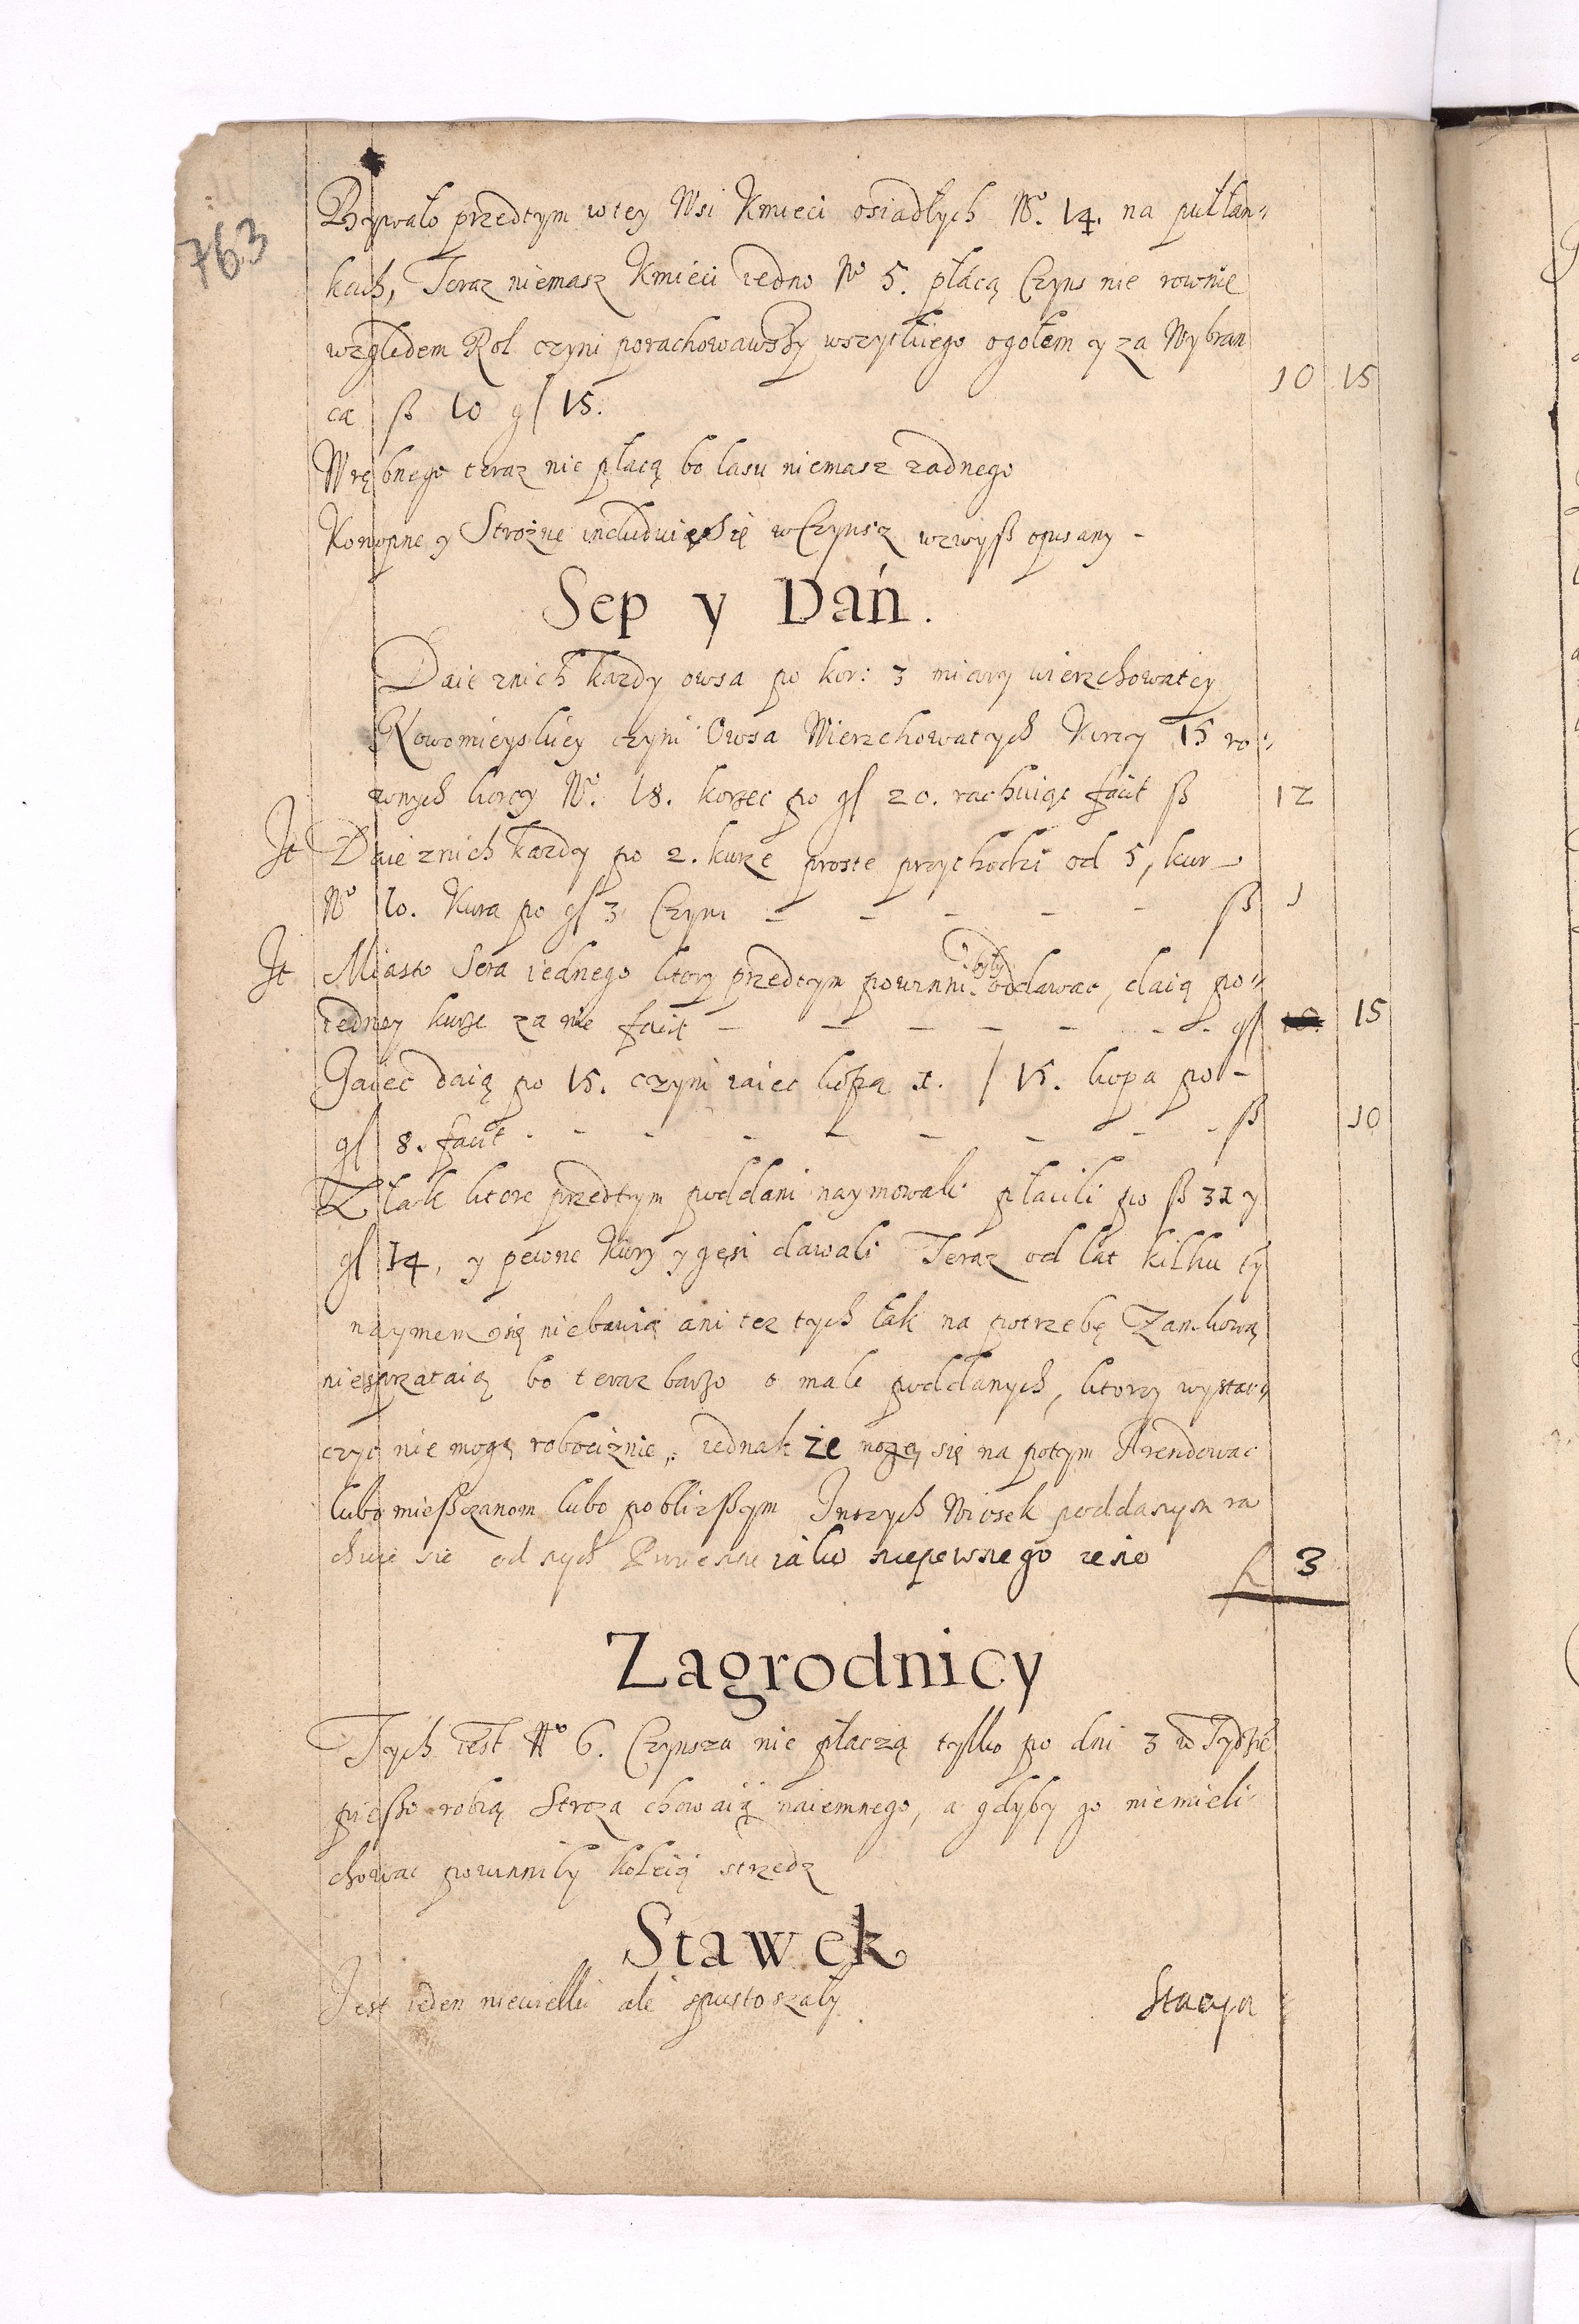 763
Bywało przedtym wtey Wsi Kmieci osiadłych No. 14. na pułłan-
kach, Teraz niemasz Kmieci iedno No 5. płacą Czyns nie rownie
względem Rol czyni porachowawszy wszytkiego ogołem y za Wybran
ca ß 10 gł 15. 10 15
Wrębnego teraz nie płacą bo lasu niemasz zadnego
Konopne y Strożne includuią się w Czynsz wzwyß opisany -
Sep y Dań.
Daie znich kazdy owsa po kor: 3 miary wierzchowatey
Nowomieyskiey czyni Owsa Wierzchowatych Korcy 15 ro-
wnych korcy No. 18. korzec po gł 20. rachuiąc facit ß 12
It Daie znich kazdy po 2. kurze proste przychodzi od 5, kur
No 10. Kura po gł 3 Czyni - - - - - ß 1
It Miasto Sera iednego ktory przedtym powinni byli oddawac, daią po-
iedney kurze za nie facit - - - - - - - gł 15
Jaiec daią po 15. czyni iaiec kopą 1. / 15. kopa po -
gł 8. facit - - - - - - - - - ß 10
Z łak ktore przedtym poddani naymowali płacili po ß 31 y
gł 14, y pewne kury y gęsi dawali Teraz od lat kilku tÿ
naymem się niebawią ani tez tych łak na potrzebę Zamkową
niesprzataią bo teraz barzo o male poddanych, ktorzy wystar-
czyc nie mogą robociznie, iednak że mogą się na potym Arendowac
lubo mießczanom lubo pobliżßym Inszych Wiosek poddanym ra
chuie się od nych Prowentu iako niepewnego ieno 3
Zagrodnicy
Tych iest No 6. Czynszu nie płaczą tylko po dni 3 w Tydzie
pießo robią Stroza chowaią naiemnego, a gdyby go niemieli
chowac powinniby koleią strzedz
Stawek
Jest ieden niewielki ale spustoszaly
Stacya